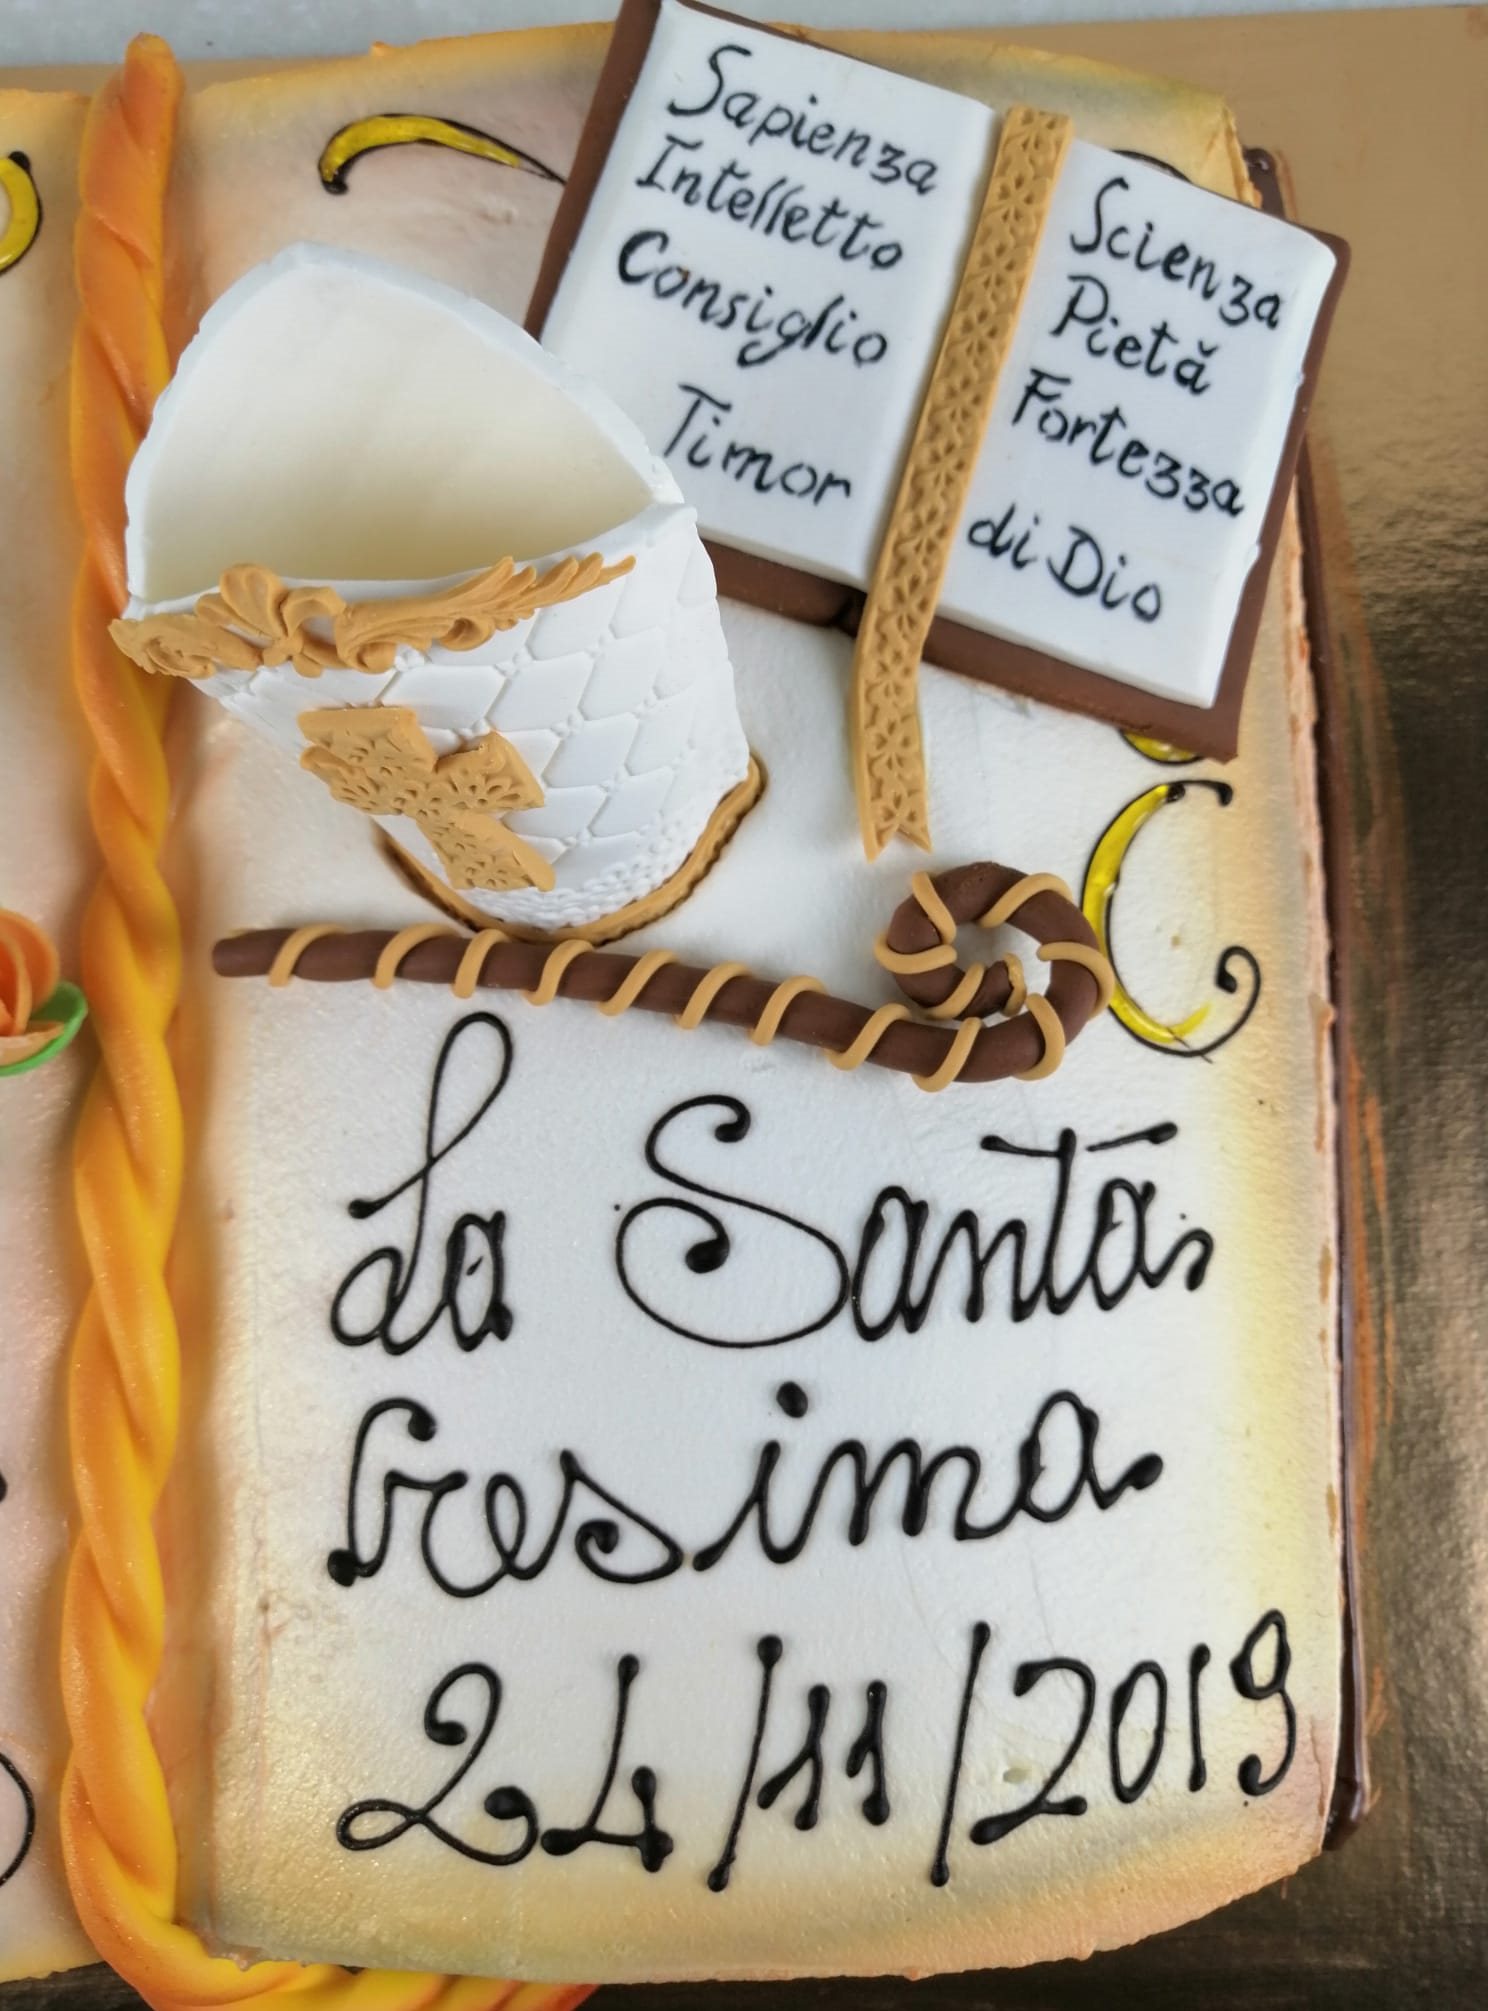 Sapienza
Intelletto
Consiglio
Timor
Scienza
Pietă
Fortezza
di Dio
La Santa
Cresima
24/11/2019